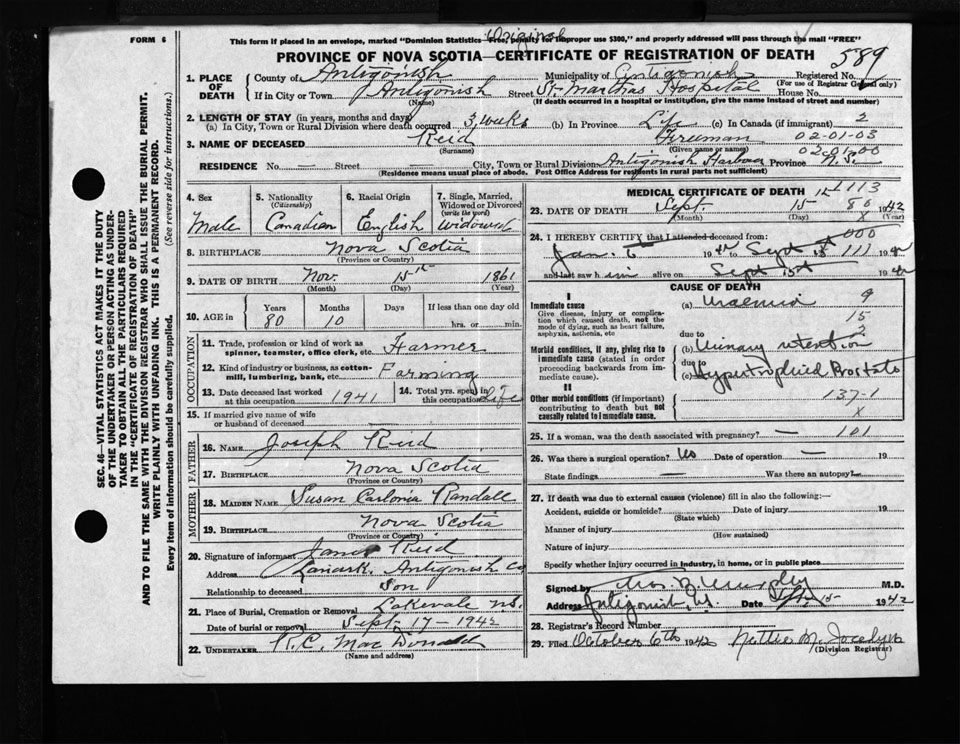 Original
FORM 6
This form if placed in an envelope, marked "Dominion Statistics—Free, penalty for improper use $300," and properly addressed will pass through the mail "FREE"
PROVINCE OF NOVA SCOTIA—CERTIFICATE OF REGISTRATION OF DEATH
589
1. PLACE OF DEATH County of Antigonish Municipality of Antigonish Registered No.
(For use of Registrar General only)
If in City or Town Antigonish Street St. Marthas Hospital House No.
(Name) (If death occurred in a hospital or institution, give the name instead of street and number)
2. LENGTH OF STAY (in years, months and days)
(a) In City, Town or Rural Division where death occurred 3 weeks (b) In Province Life (c) In Canada (if immigrant) 2
3. NAME OF DECEASED Reid Freeman 02-01-03
(Surname) (Given name or names) 02-01-00
RESIDENCE No. — Street — City, Town or Rural Division Antigonish Harbour Province N.S.
(Residence means usual place of abode. Post Office Address for residents in rural parts not sufficient)
SEC. 46—VITAL STATISTICS ACT MAKES IT THE DUTY
OF THE UNDERTAKER OR PERSON ACTING AS UNDERTAKER TO OBTAIN ALL THE PARTICULARS REQUIRED
IN THE "CERTIFICATE OF REGISTRATION OF DEATH"
AND TO FILE THE SAME WITH THE DIVISION REGISTRAR WHO SHALL ISSUE THE BURIAL PERMIT.
WRITE PLAINLY WITH UNFADING INK. THIS IS A PERMANENT RECORD.
Every item of information should be carefully supplied. (See reverse side for instructions.)
4. Sex Male
5. Nationality (Citizenship) Canadian
6. Racial Origin English
7. Single, Married, Widowed or Divorced (write the word) Widowed
8. BIRTHPLACE Nova Scotia
(Province or Country)
9. DATE OF BIRTH Nov. 15th 1861
(Month) (Day) (Year)
10. AGE in Years Months Days If less than one day old
80 10 hrs. or min.
OCCUPATION
11. Trade, profession or kind of work as spinner, teamster, office clerk, etc. Farmer
12. Kind of industry or business, as cotton-mill, lumbering, bank, etc. Farming
13. Date deceased last worked at this occupation 1941
14. Total yrs. spent in this occupation Life
15. If married give name of wife or husband of deceased —
FATHER
16. NAME Joseph Reid
17. BIRTHPLACE Nova Scotia
(Province or Country)
MOTHER
18. MAIDEN NAME Susan Randall
19. BIRTHPLACE Nova Scotia
(Province or Country)
20. Signature of informant James Reid
Address Lanark, Antigonish Co
Relationship to deceased Son
21. Place of Burial, Cremation or Removal Lakevale N.S.
Date of burial or removal Sept. 17 - 1942
22. UNDERTAKER R.C. Mac Donald
(Name and address)
MEDICAL CERTIFICATE OF DEATH
1113
23. DATE OF DEATH Sept. 15 80 1942
(Month) (Day) (Year)
24. I HEREBY CERTIFY that I attended deceased from: 000
Jan. 6 1942 to Sept 15th 111 1942
and last saw him alive on Sept 15th 1942
CAUSE OF DEATH
I
Immediate cause (a) Uraemia 9
Give disease, injury or complication which caused death, not the mode of dying, such as heart failure, asphyxia, asthenia, etc
15
2
due to
Morbid conditions, if any, giving rise to immediate cause (stated in order proceeding backwards from immediate cause).
(b) Urinary retention
due to
(c) Hypertrophied Prostate
II
Other morbid conditions (if important) contributing to death but not causally related to immediate cause.
137-1
X
25. If a woman, was the death associated with pregnancy? — 101
26. Was there a surgical operation? No Date of operation — 19
State findings — Was there an autopsy
27. If death was due to external causes (violence) fill in also the following:—
Accident, suicide or homicide? Date of injury 19
(State which)
Manner of injury
(How sustained)
Nature of injury
Specify whether injury occurred in industry, in home, or in public place
Signed by Murphy M.D.
Address Antigonish, N.S. Date Sept 15 1942
28. Registrar's Record Number
29. Filed October 6th 1942 Nettie M. Jocelyn
(Division Registrar)